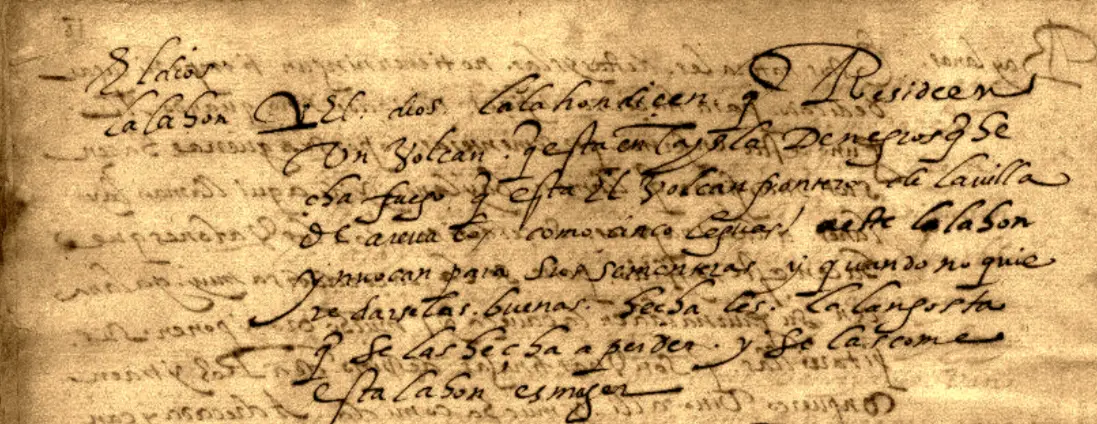 El dios
lalahon
El dios lalahon dicen q Reside en
Un Volcan. q esta en la ysla De negros q he
cha fuego. q esta El Volcan frontero de la villa
de arevalo, como cinco leguas. a este lalahon
ynvocan para sus sementeras y quando no quie
re darselas buenas. hecha les. la langosta
q se las hecha a perder. y se las come
esta lahon es muger